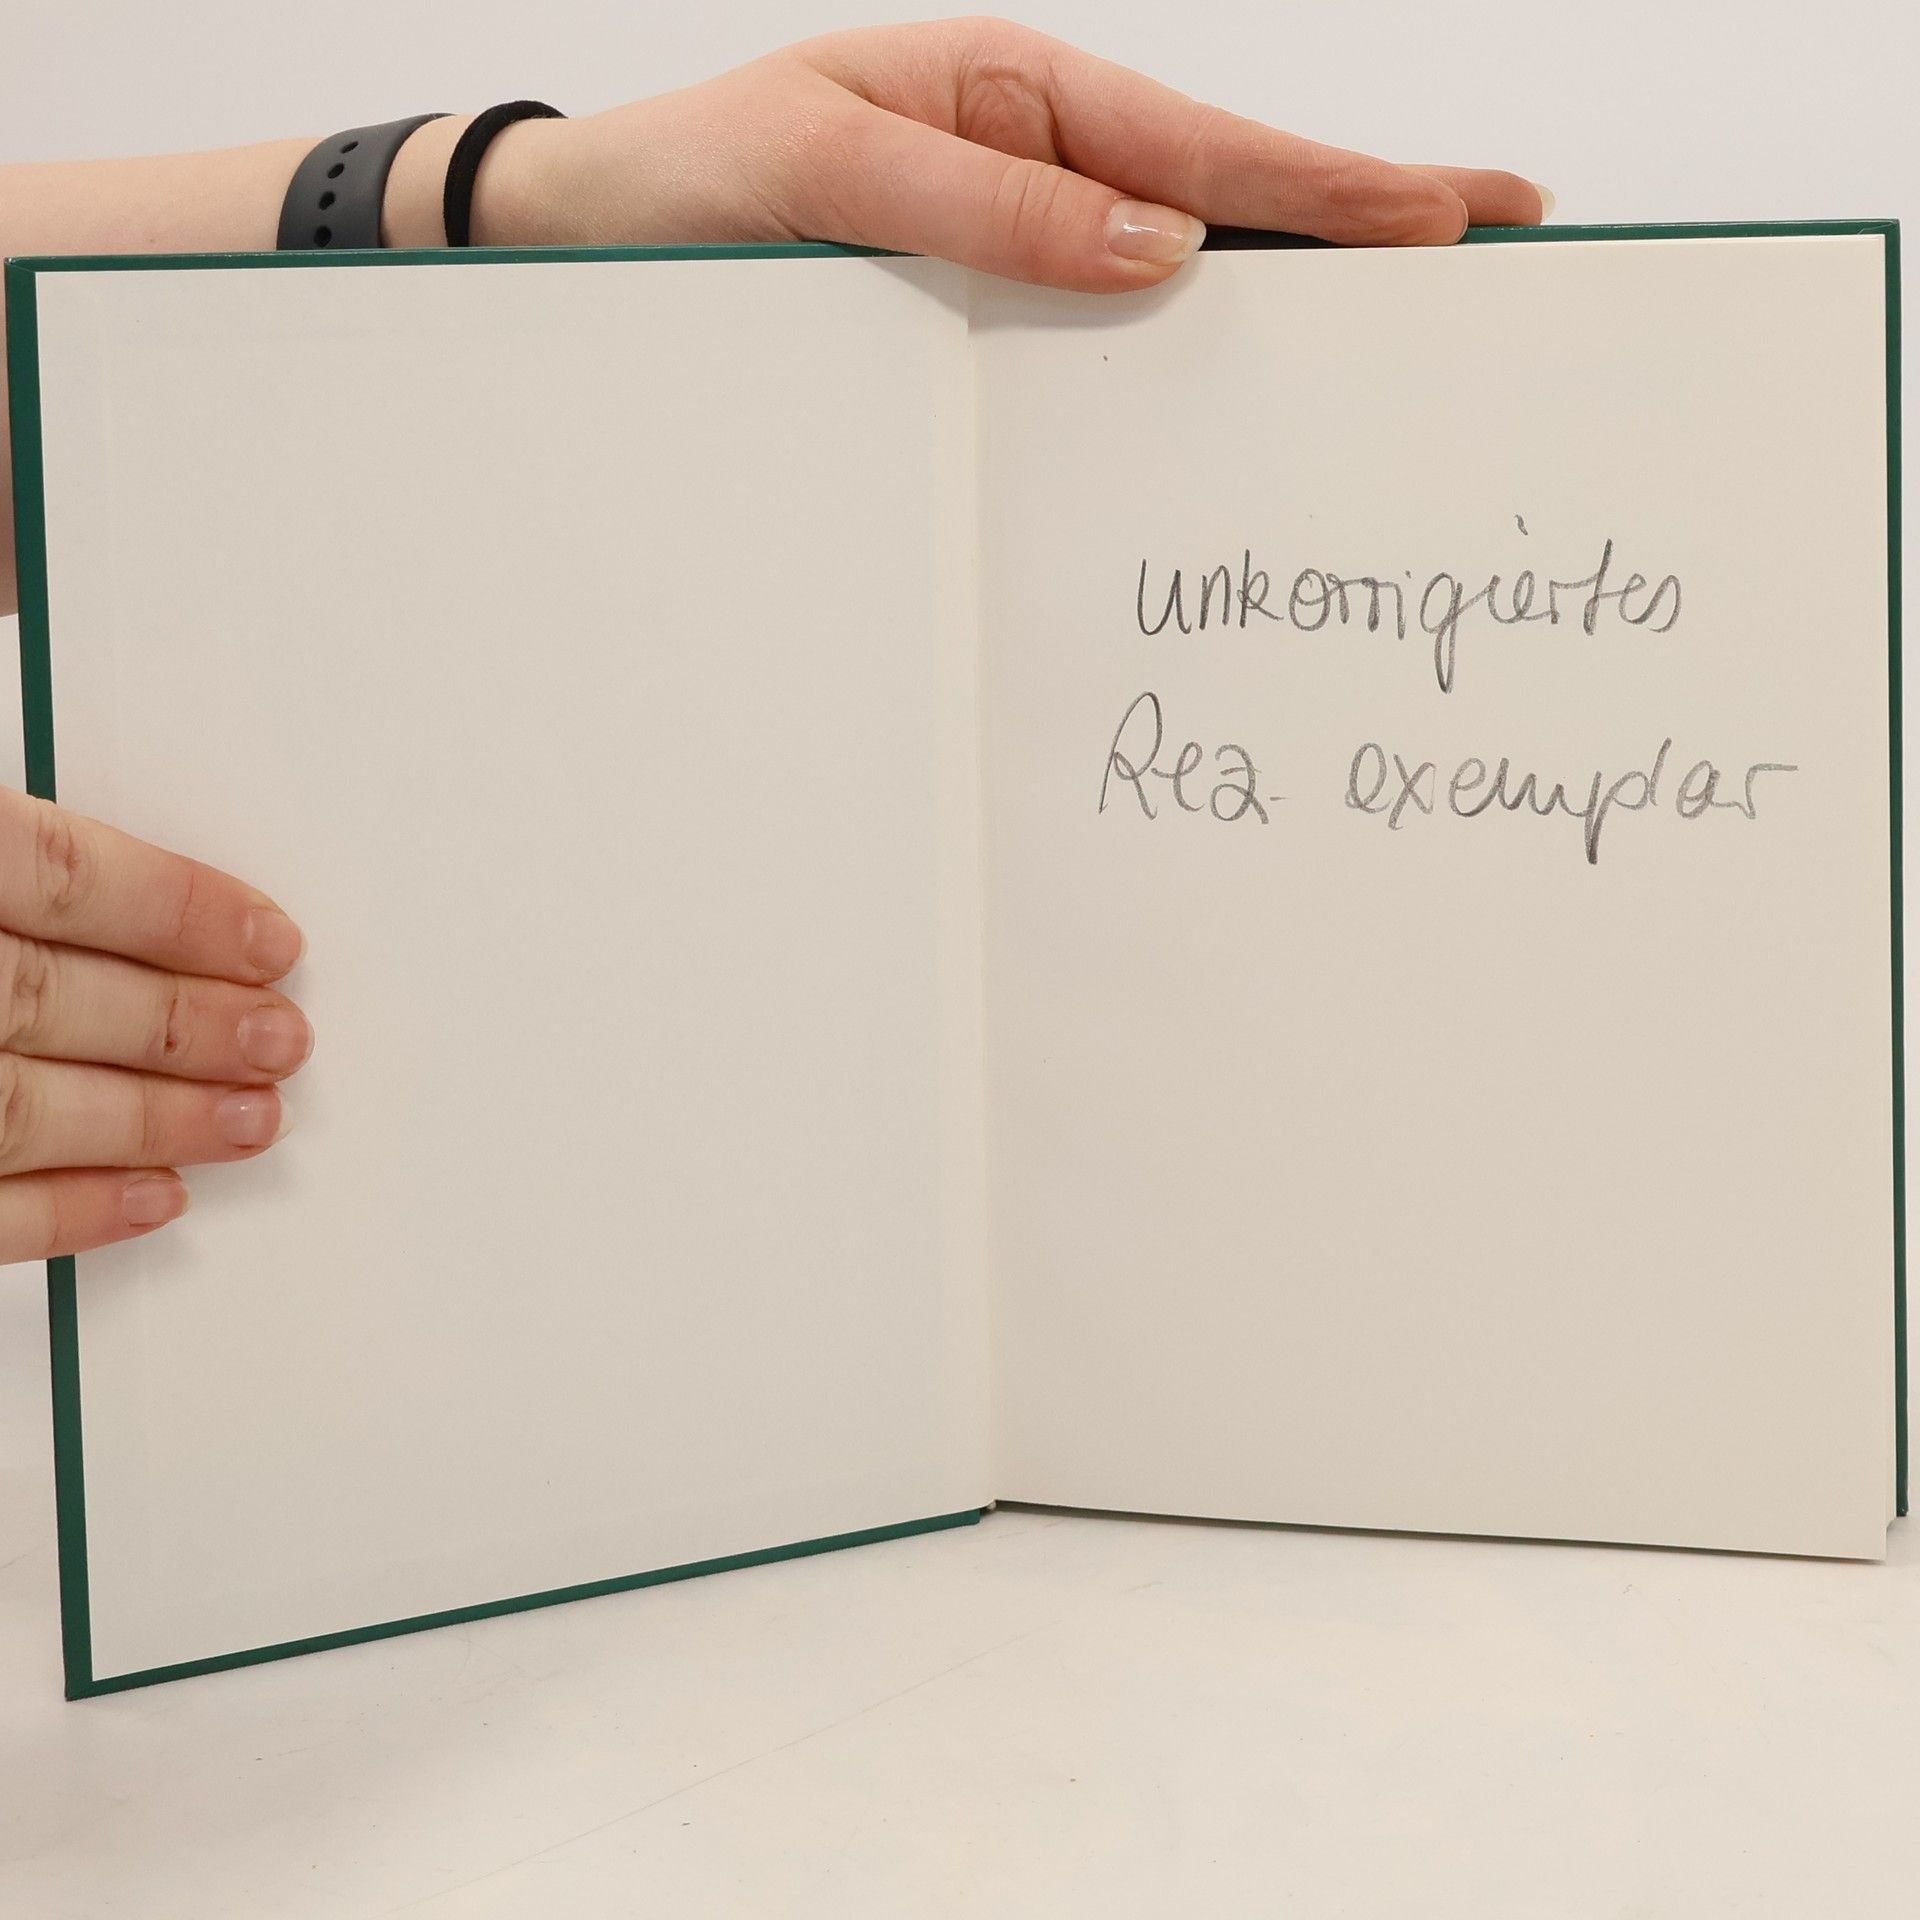 unkorrigiertes
Rez- exemplar